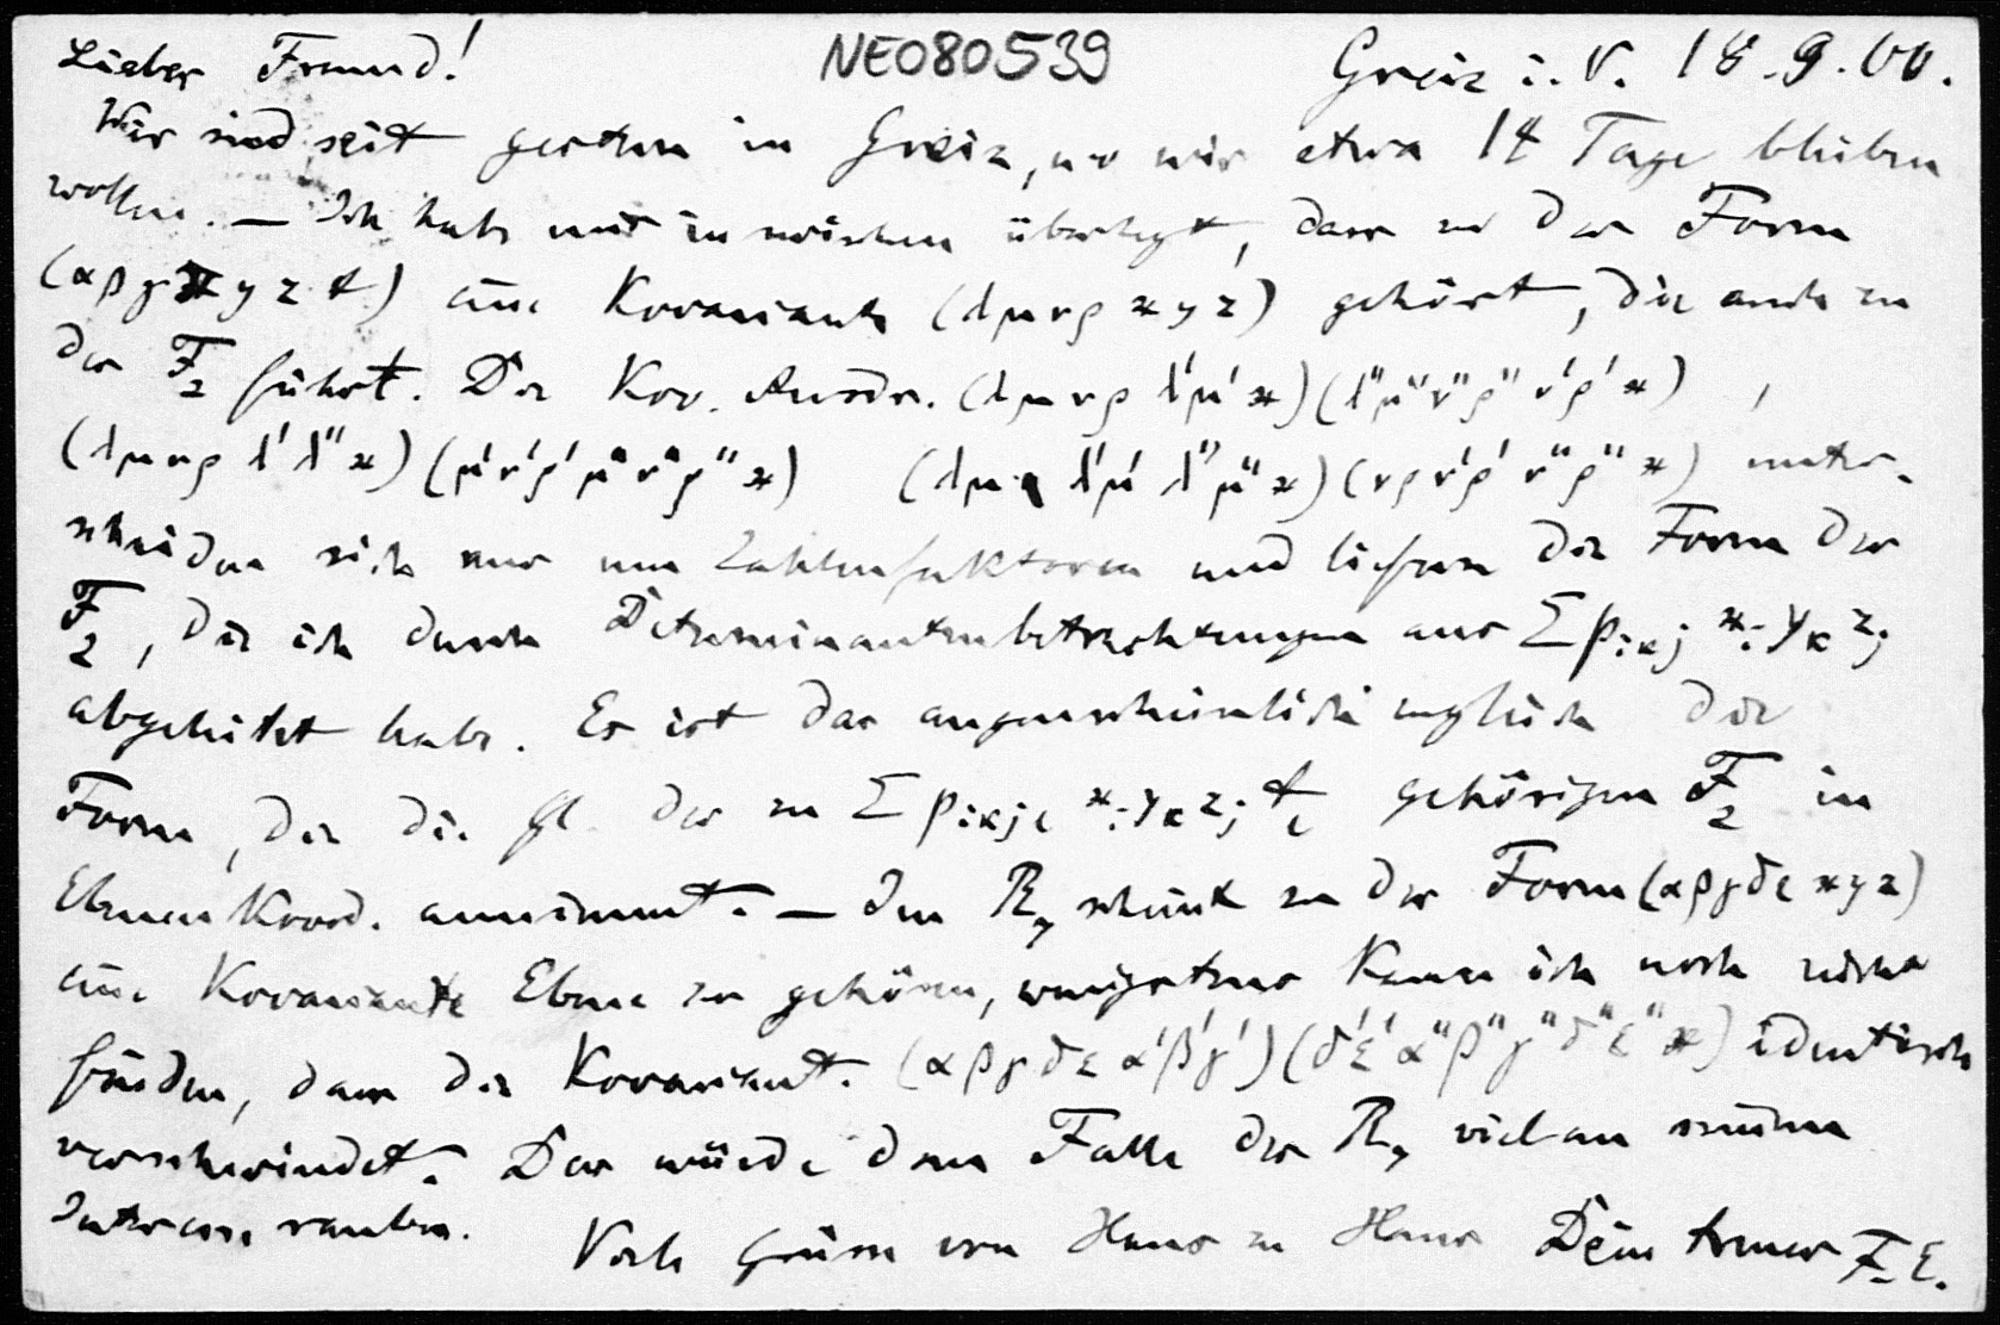 Lieber Freund! NE080539 Greiz i. V. 18.9.00.
Wir sind seit gestern in Greiz, wo wir etwa 14 Tage bleiben
wollen. — Ich habe mir inzwischen überlegt, dass zu der Form
(αβγxyzt) eine Kovariante (λμνρxyz) gehört, die auch zu
der F₂ führt. Die Kov. Ausdr. (λμνρ λ'μ'x)(λ''μ''ν''ρ'' ν'ρ'x),
(λμνρ λ'λ''x)(μ'ν'ρ'μ''ν''ρ''x) (λμ λ'μ' λ''μ''x)(νρν'ρ' ν''ρ''x) unter-
scheiden sich nur um Zahlenfaktoren und liefern die Form der
F₂, die ich durch Determinantenbetrachtungen aus Σ p_{ikj} x_i y_k z_j
abgeleitet habe. Es ist das augenscheinlich zugleich die
Form, die die Gl. der zu Σ p_{ikjl} x_i y_k z_j t_l gehörigen F₂ in
Ebenen Koord. annimmt. — Im R₇ scheint zu der Form (αβγδε xyz)
eine Kovariante Ebene zu gehören, wenigstens kann ich noch nicht
finden, dass die Kovariante (αβγδε α'β'γ')(δ'ε'α''β''γ''δ''ε''x) identisch
verschwindet. Das würde dem Falle des R₇ viel an seinem
Interesse rauben. Viele Grüsse von Haus zu Haus Dein treuer F. E.